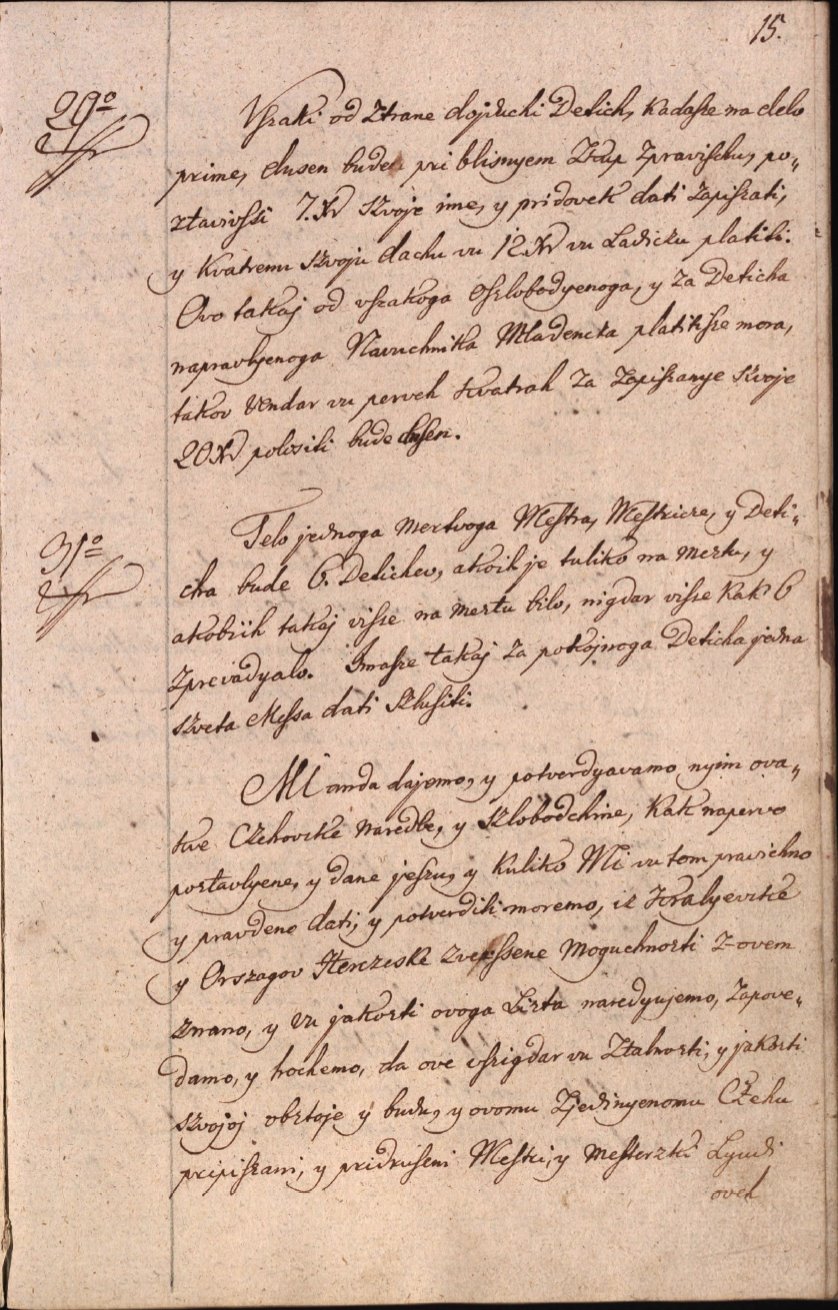 15.
29º
Vszaki od ztrane dojduchi Detich, kadasze na delo
prime, dusen bude pri blisnyem Ztup Zpravischu, po-
ztavivssi 7. Xr szvoje ime, y pridovek dati zapiszati,
y kvatrenu szvoju dachu vu 12 Xr vu Ladiczu platiti.
Ovo takaj od vszakoga oszlobodyenoga, y za Deticha
napravlyenoga Navuchnika Mladencza platitisze mora,
takov vendar vu perveh kvatrah za zapiszanye szvoje
20 Xr polositi bude dusen.
31º
Telo jednoga mertvoga Mestra, Mestricze, y Deti-
cha bude 6. Detichev, akoih je tuliko na meztu, y
akobiih takaj visse na meztu bilo, nigdar visse kak 6
zprevadyalo. Imasze takaj za pokojnoga Deticha jedna
szveta Messa dati szlusiti.
Mi anda dajemo, y potverdyavamo nyim ova-
kve Czehovzke naredbe, y szlobodchine, kak napervo
poztavlyene, y dane jeszu, y kuliko Mi vu tom pravichno
y pravdeno dati, y potverditi moremo, iz Kralyevzke
y Orszagov Herczeske zvissene moguchnozti z-ovem
znano, y vu jakozti ovoga Lizta naredyujemo, zapove-
damo, y hochemo, da ove vszigdar vu ztalnozti, y jakozti
szvojoj obztoje y budu, y ovomu zjedinyenomu Czehu
pripiszani, y pridruseni Mestri, y mesterzki Lyudi
oveh